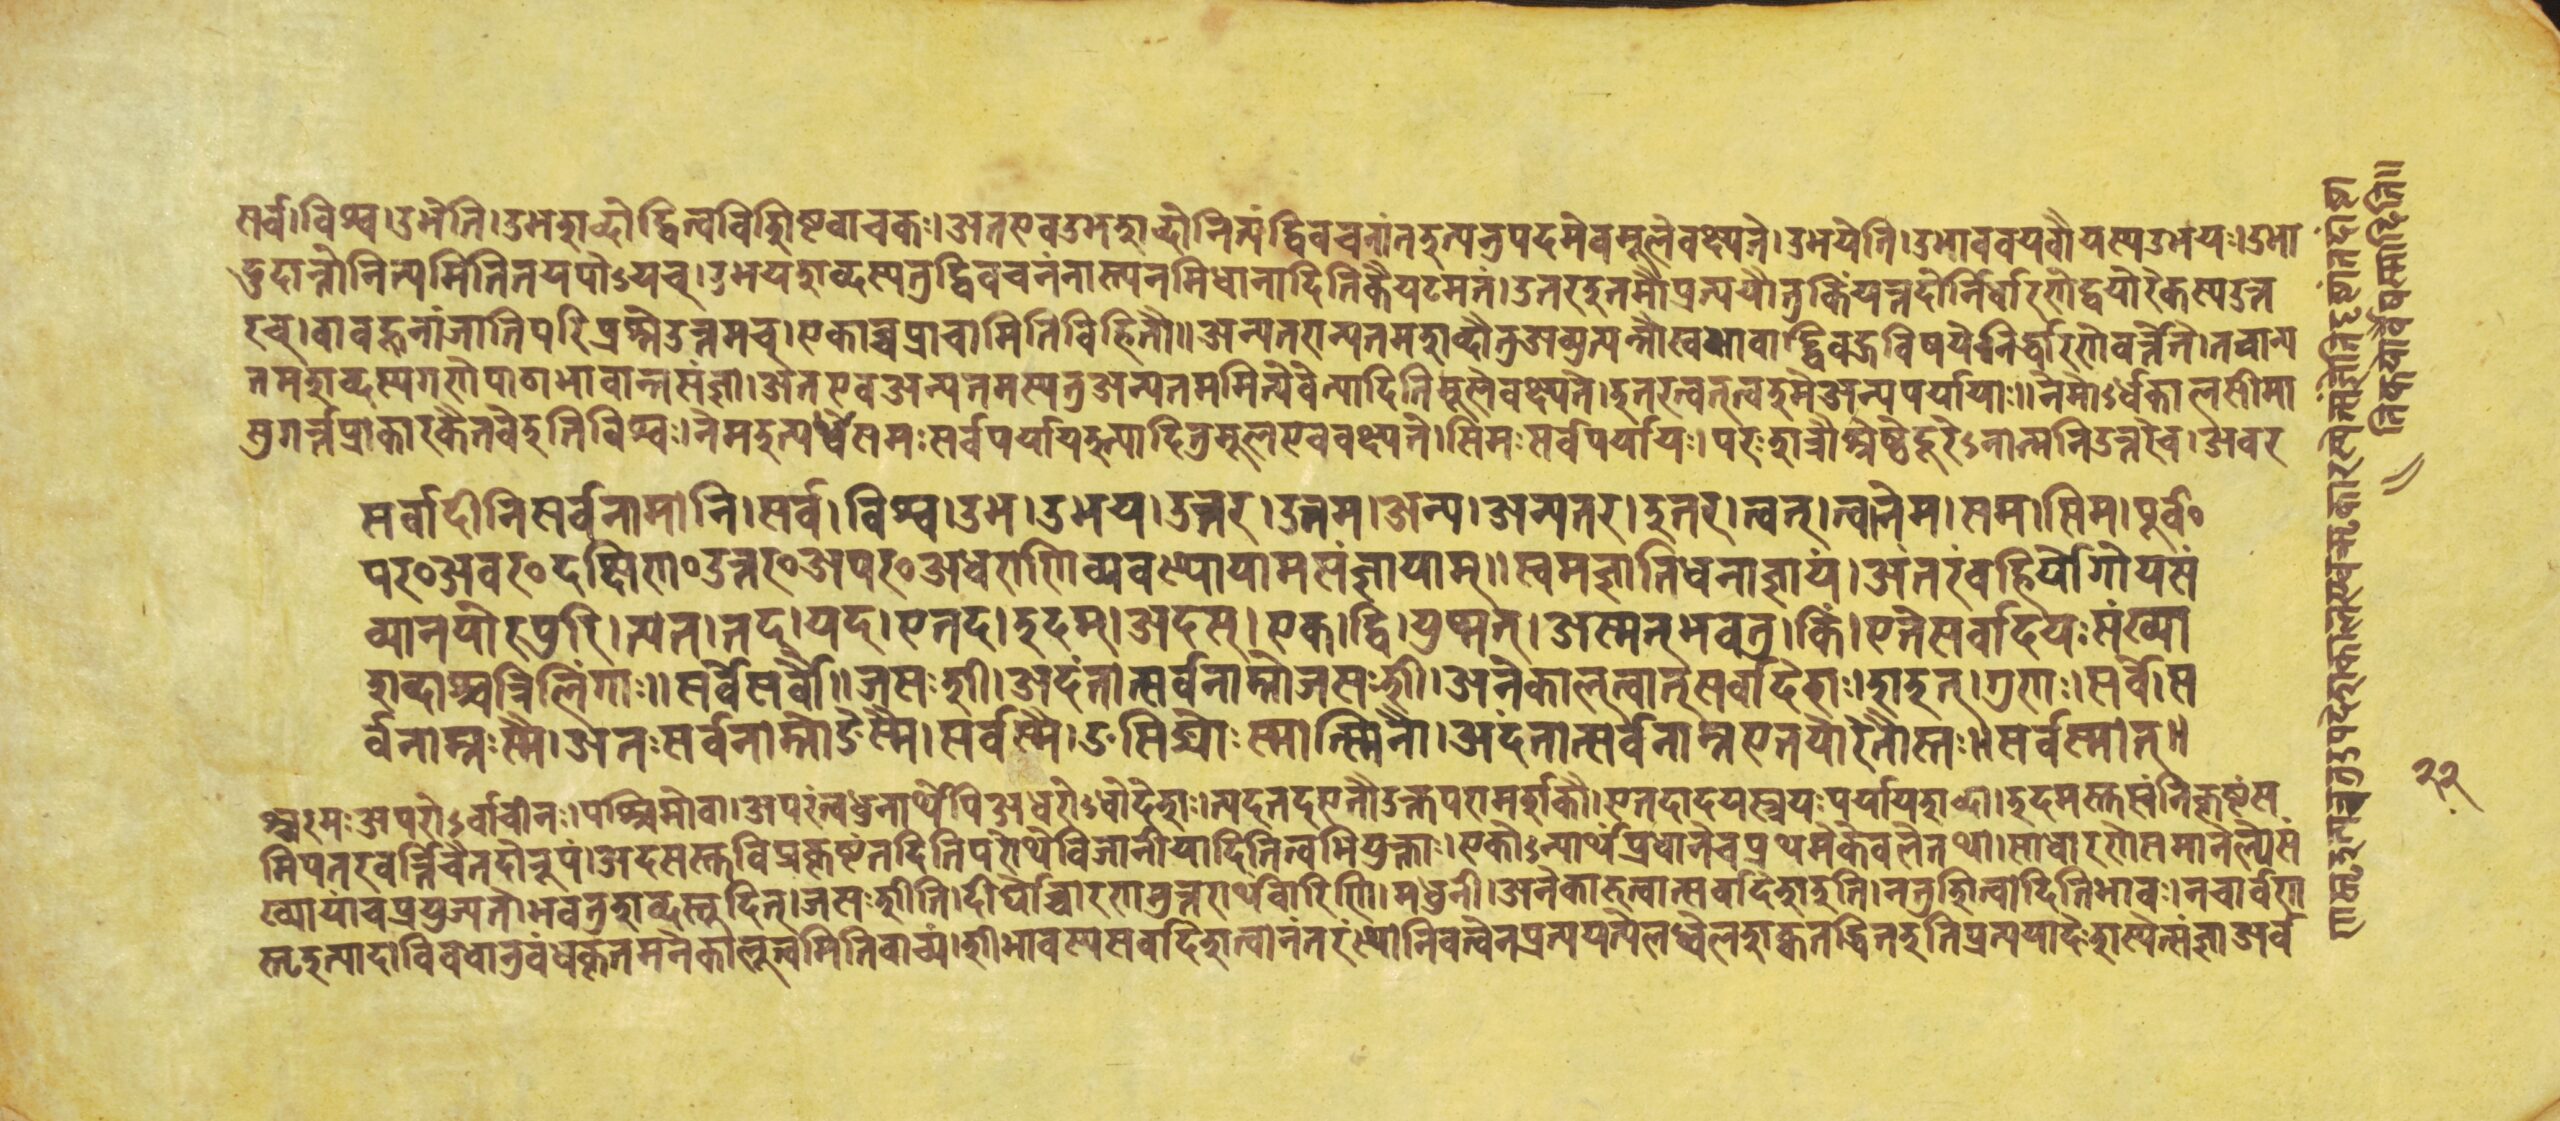 सर्व।विश्व।उभेति।उभशब्दोद्वित्वविशिष्टवाचकः।अतएवउभशब्दोनित्यंद्विवचनांतइत्यनुपदमेवमूलेवक्ष्यते।उभयेति।उभाववयवौयस्यउभयः।उभा
दुदात्तोनित्यमितितयपोऽयच्।उभयशब्दस्यतुद्विवचनंनास्त्यनभिधानादितिकैयटमतं।डतरडतमौप्रत्ययौतुकिंयत्तदोर्निर्धारणेद्वयोरेकस्यडत
रच्।वाबहूनांजातिपरिप्रश्नेडतमच्।एकाच्चप्राचामितिविहितौ॥अन्यतरान्यतमशब्दौतुअव्युत्पन्नौस्वभावाद्द्विबहुविषयेनिर्द्धारणेवर्त्तेते।तत्रान्य
तमशब्दस्यगणेपाठाभावान्नसंज्ञा।अतएवअन्यतमस्यतुअन्यतममित्येवेत्यादितिमूलेवक्ष्यते।इतरत्वतत्वइमेअन्यपर्यायाः॥नेमोऽर्धकालसीमा
सुगर्त्तप्राकारकैतवेइतिविश्वः।नेमइत्यर्धेसमःसर्वपर्यायइत्यादितुमूलएववक्ष्यते।सिमःसर्वपर्यायः।परःशत्रौश्रेष्ठेदूरेऽनात्मनिउत्तरेच।अवर
सर्वादीनिसर्वनामानि।सर्व।विश्व।उभ।उभय।डतर।डतम।अन्य।अन्यतर।इतर।त्वत्।त्व।नेम।सम।सिम।पूर्व०
पर०अवर०दक्षिण०उत्तर०अपर०अधराणिव्यवस्थायामसंज्ञायाम्॥स्वमज्ञातिधनाख्यायं।अंतरंबहिर्योगोपसं
व्यानयोरपुरि।त्यत्।तद्।यद्।एतद्।इदम्।अदस्।एक।द्वि।युष्मत्।अस्मत्भवतु।किं।एतेसर्वादयःसंख्या
शब्दाश्चत्रिलिंगाः॥सर्वेसर्वौ॥जसःशी।अदंतात्सर्वनाम्नोजसःशी।अनेकाल्त्वात्सर्वादेशः।शाइत्।गुणः।सर्वे।स
र्वनाम्नःस्मै।अतःसर्वनाम्नोङेस्मै।सर्वस्मै।ङसिङ्योःस्मात्स्मिनौ।अदंतात्सर्वनाम्नएतयोरेतौस्तः॥सर्वस्मात्॥
श्चरमःअपरोऽर्वाचीनः।पश्चिमोवा।अपरंत्वधुनार्थेपिअधरोऽधोदेशः।त्यदतदएतौउक्तपरामर्शकौ।एतदादयस्त्रयःपर्यायशब्दाः।इदमस्तुसंनिकृष्टंस
मिपतरवर्त्तिचैतदोरूपं।अदसस्तुविप्रकृष्टंतदितिपरोक्षेविजानीयादितित्वभियुक्ताः।एकोऽन्यार्थेप्रधानेचप्रथमेकेवलेतथा।साधारणेसमानेल्पेसं
ख्यायांचप्रयुज्यते।भवतुशब्दस्तूदित्।जसःशीति।दीर्घोच्चारणमुत्तरार्थंवारिणि।मधुनी।अनेकाल्त्वात्सर्वादेशइति।नतुशित्वादितिभावः।नचार्वण
स्तृइत्यादाविवेवानुबंधकृतमनेकाल्त्वमितिवाच्यं।शीभावस्यसर्वादेशत्वानंतरंस्थानिवत्त्वेनप्रत्ययत्वेलब्धेलशक्वतद्धितइतिप्रत्ययादेःशस्येत्संज्ञाअर्व
२२